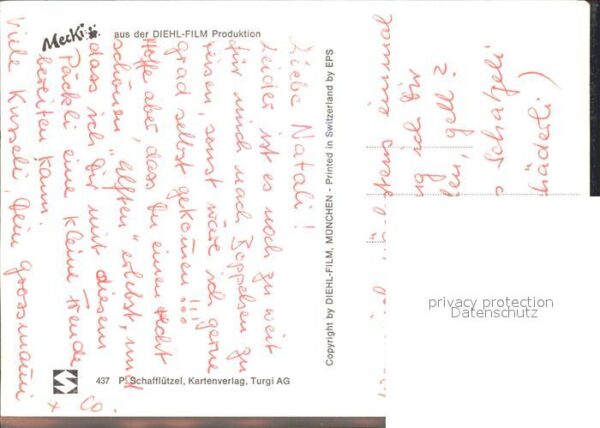 Mecki
aus der DIEHL-FILM Produktion
Liebe Natali!
Leider ist es noch zu weit
für mich nach Boppelsen zu
reisen, sonst wäre ich gerne
grad selbst gekommen!!!
Hoffe aber, dass Du einen recht
schönen "elften" erlebst, und
dass ich Dir mit diesem
Päckli eine kleine Freude
bereiten kann.
Viele Kusseli, Dein Grossmami
einmal
ich Dir
gell?
Schätzeli
Copyright by DIEHL-FILM, MÜNCHEN - Printed in Switzerland by EPS
437 P. Schafflützel, Kartenverlag, Turgi AG
privacy protection
Datenschutz